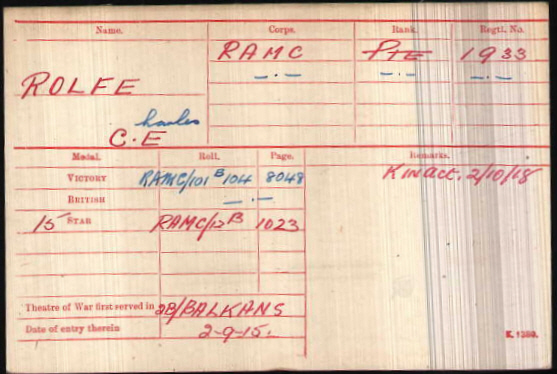 Name. Corps. Rank. Regtl. No.
ROLFE RAMC PTE 1933
— . — — . — — . —
harles
C.E
Medal. Roll. Page. Remarks.
VICTORY RAMC/101 B 104 8048 K in act. 2/10/18
BRITISH — . —
15 STAR RAMC/12 B 1023
Theatre of War first served in 2B/BALKANS
Date of entry therein 2-9-15.
K. 1380.